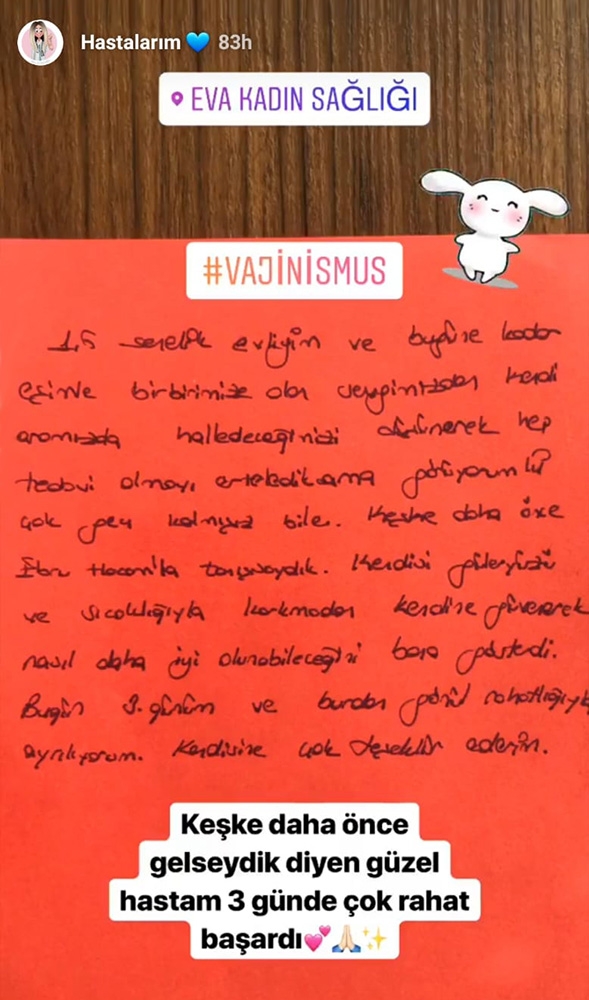 Hastalarım 💙 83h
EVA KADIN SAĞLIĞI
#VAJİNİSMUS
1,5 senelik evliyim ve bugüne kadar
eşimle birbirimize olan saygımızdan kendi
aramızda halledeceğimizi düşünerek hep
tedavi olmayı erteledik ama görüyorum ki
çok geç kalmışız bile. Keşke daha önce
Ebru Hocam'la tanışsaydık. Kendisi güleryüzü
ve sıcaklığıyla korkmadan kendine güvenerek
nasıl daha iyi olunabileceğini bana gösterdi.
Bugün 3. günüm ve burdan gönül rahatlığıyla
ayrılıyorum. Kendisine çok teşekkür ederim.
Keşke daha önce
gelseydik diyen güzel
hastam 3 günde çok rahat
başardı💕🙏🏻✨